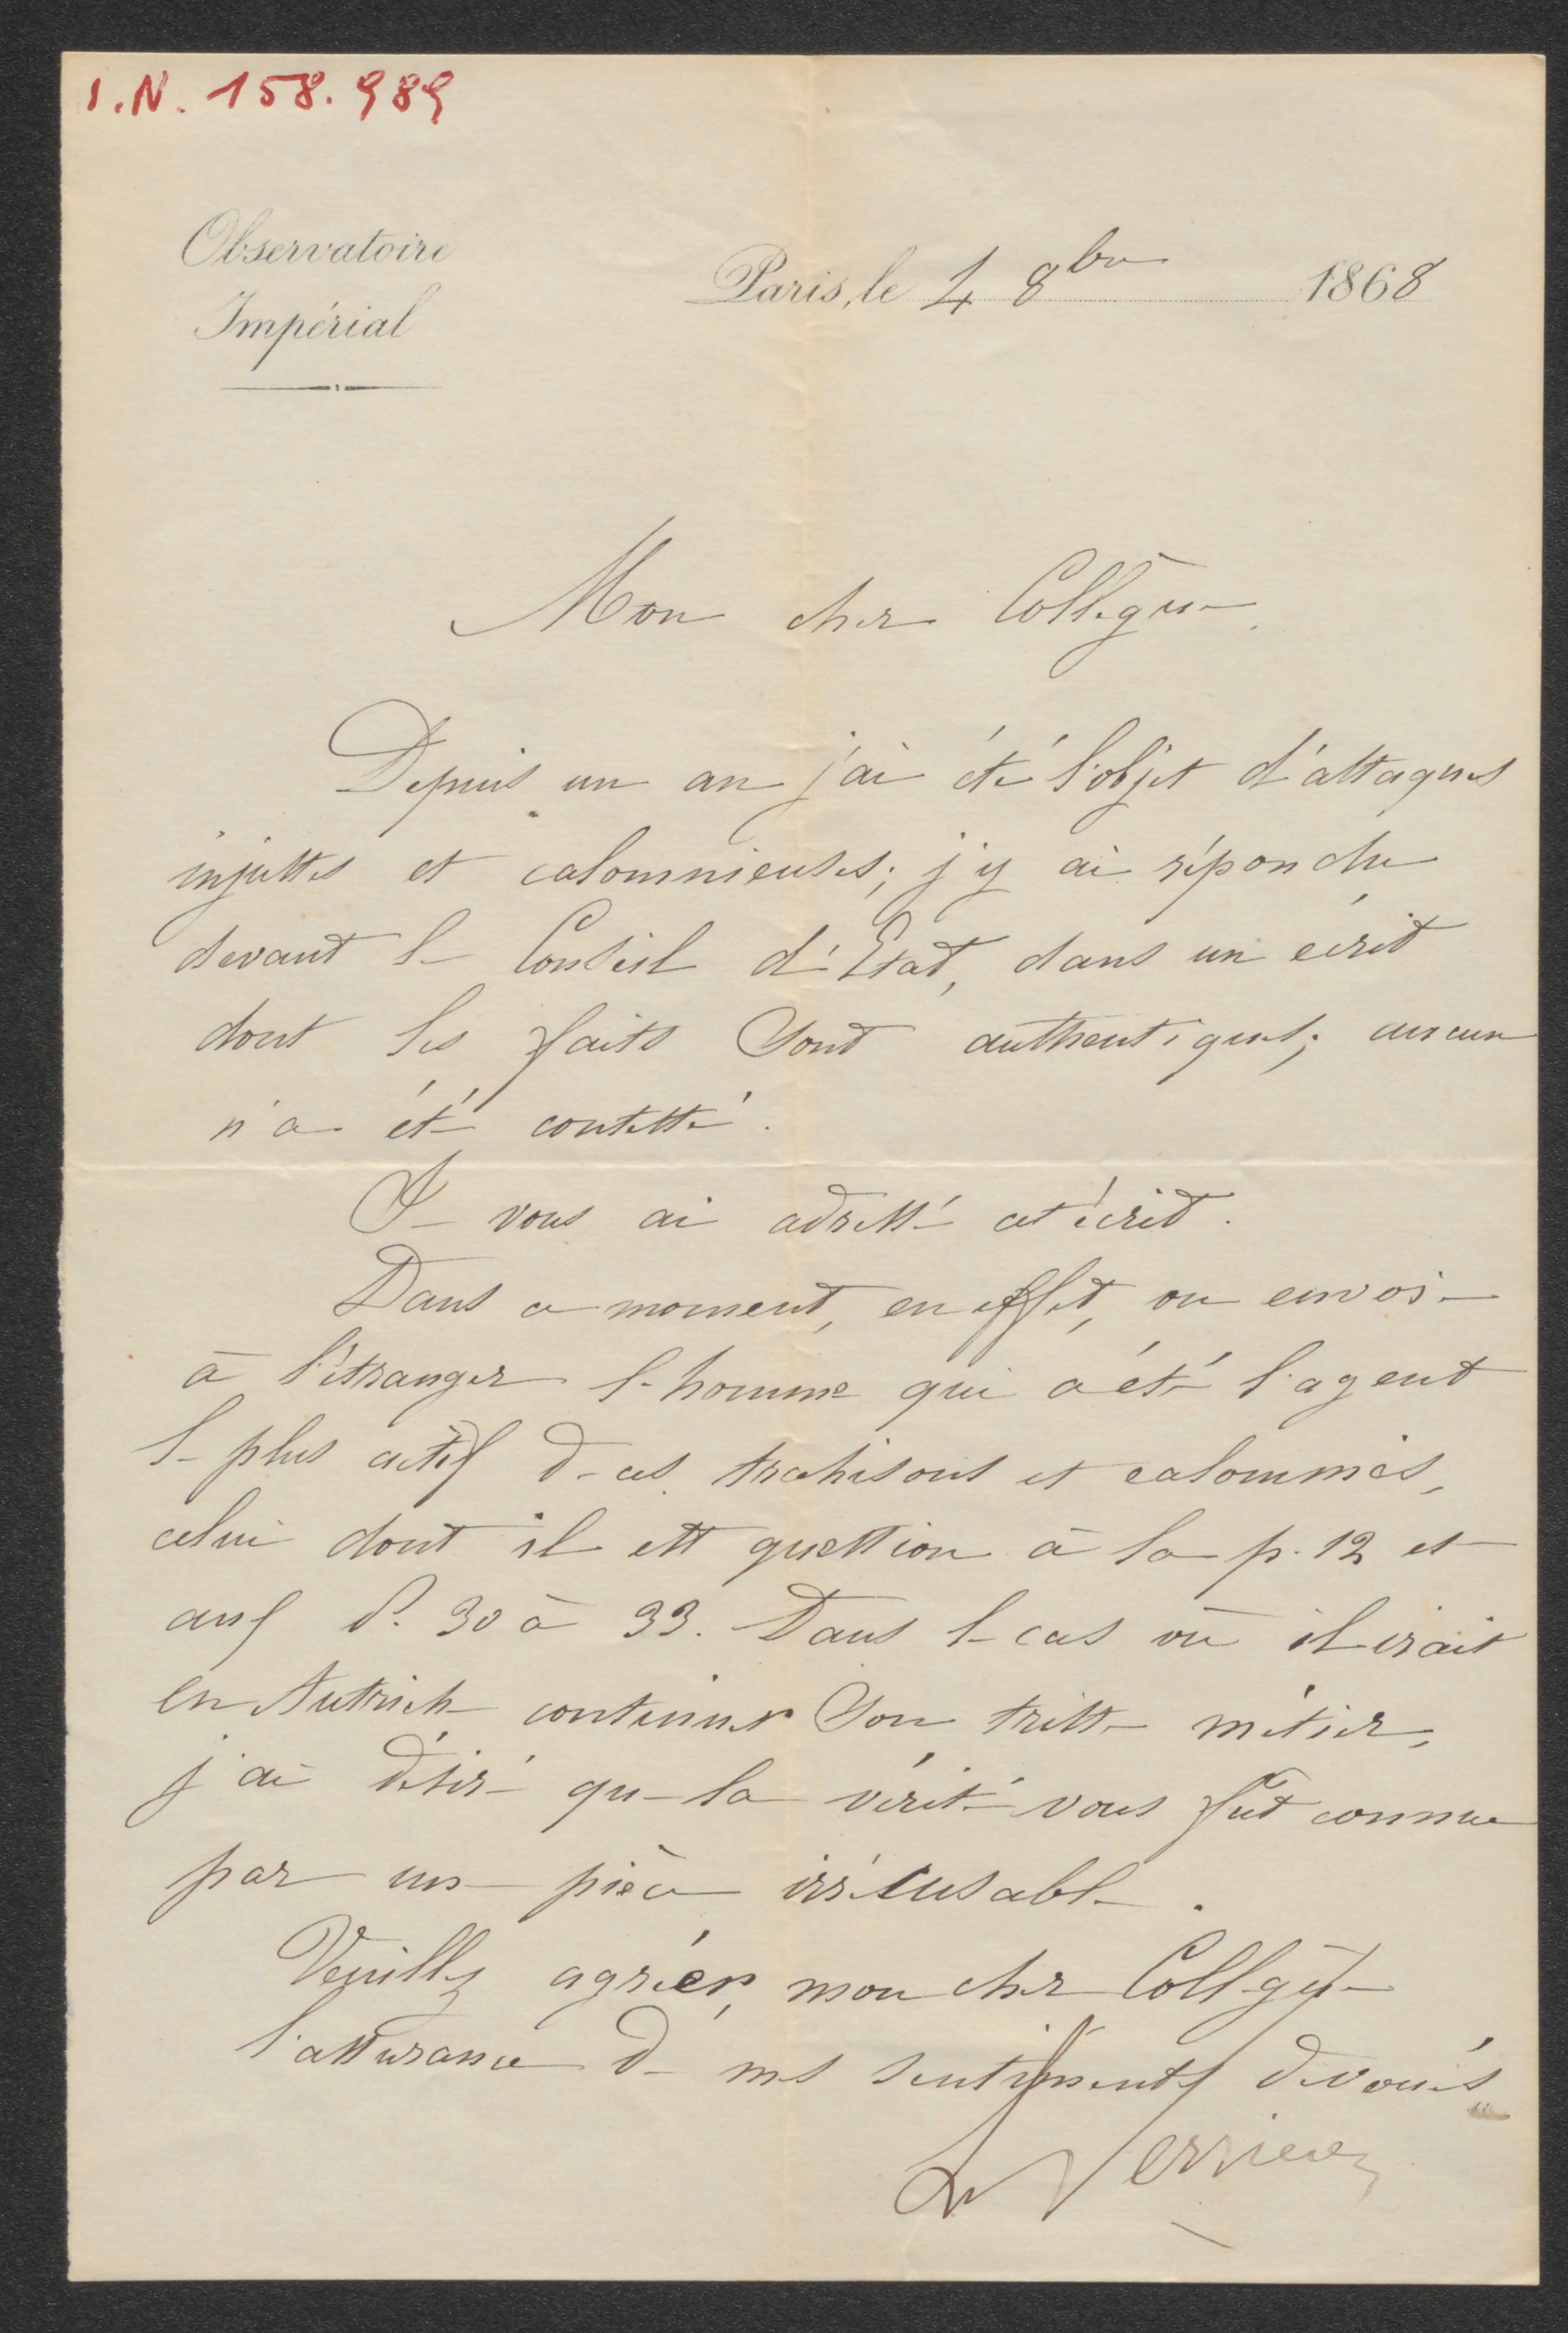 I.N. 158.989
Observatoire
Impérial
Paris, le 4 8bre 1868
Mon cher Collègue
Depuis un an j'ai été l'objet d'attaques
injustes et calomnieuses; j'y ai répondu
devant le Conseil d'Etat, dans un écrit
dont les faits sont authentiques; aucun
n'a été contesté.
Je vous ai adressé cet écrit.
Dans ce moment, en effet, on envoie
à l'étranger l'homme qui a été l'agent
le plus actif de ces trahisons et calomnies,
celui dont il est question à la p. 12 et
aux P. 30 à 33. Dans le cas où il irait
en Autriche continuer son triste métier,
j'ai désiré que la vérité vous fut connue
par une pièce irrécusable.
Veuillez agréer, mon cher Collègue
l'assurance de mes sentiments dévoués
Le Verrier